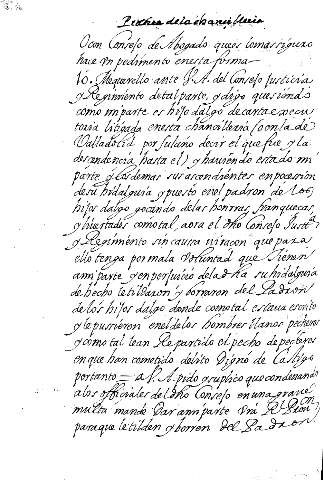 Pechea de la chancilleria
O con Consejo de Abogado que es lo mas siguro
hace Un pedimento en esta forma
Yo. Me querello ante V.A. del Consejo Justicia
y Regimiento de tal parte, y digo que siendo
como mi parte es hijo dalgo de carta execu
toria litigada en esta chancilleria (o en la de
Valladolid por fulano decir el que fue, y la
descendencia hasta el) y haviendo estado mi
parte y los demas sus ascendientes en posesion
de su hidalguia y puesto en el padron de los
hijos dalgo gozando de las honrras, franquezas,
y livertades como tal, aora el dho Consejo Justª
y Regimiento sin causa ni racon que para
ello tenga por mala Voluntad que tienen
a mi parte y en perjuicio de la dha su hidalguia
de hecho le tildaron y borraron del Padron
de los hijos dalgo donde como tal estava escrito
y le pussieron en el de los hombres llanos pecheros
y como tal lean Repartido el pecho de pecheros
en que han cometido delito Digno de Castigo
portanto = a V.A. pido y suplico que condenando
a los officiales del dho Consejo en una grave
multa mande Dar a mi parte Vrã Rl Provon
para que le tilden y borren del Padron